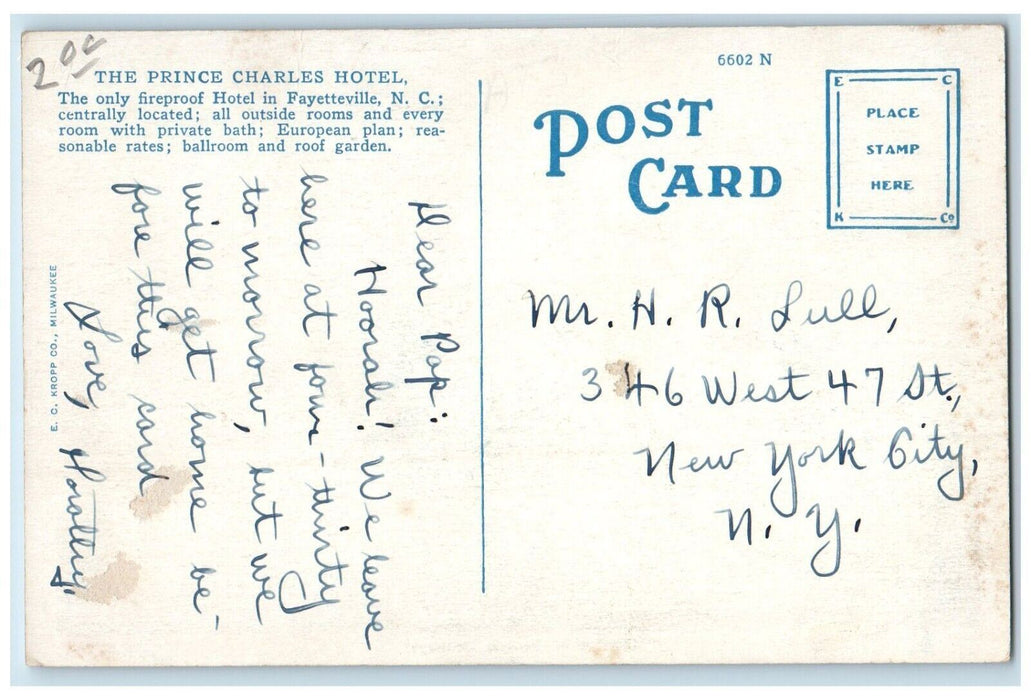 2.00
THE PRINCE CHARLES HOTEL,
The only fireproof Hotel in Fayetteville, N. C.;
centrally located; all outside rooms and every
room with private bath; European plan; rea-
sonable rates; ballroom and roof garden.
Dear Pop:
Hoorah! We leave
here at four-thirty
to morrow, but we
will get home be-
fore this card
Love,
E. C. KROPP CO., MILWAUKEE
6602 N
POST
CARD
E C
PLACE
STAMP
HERE
K Co
Mr. H. R. Lull,
346 West 47 St.,
New York City,
N. Y.